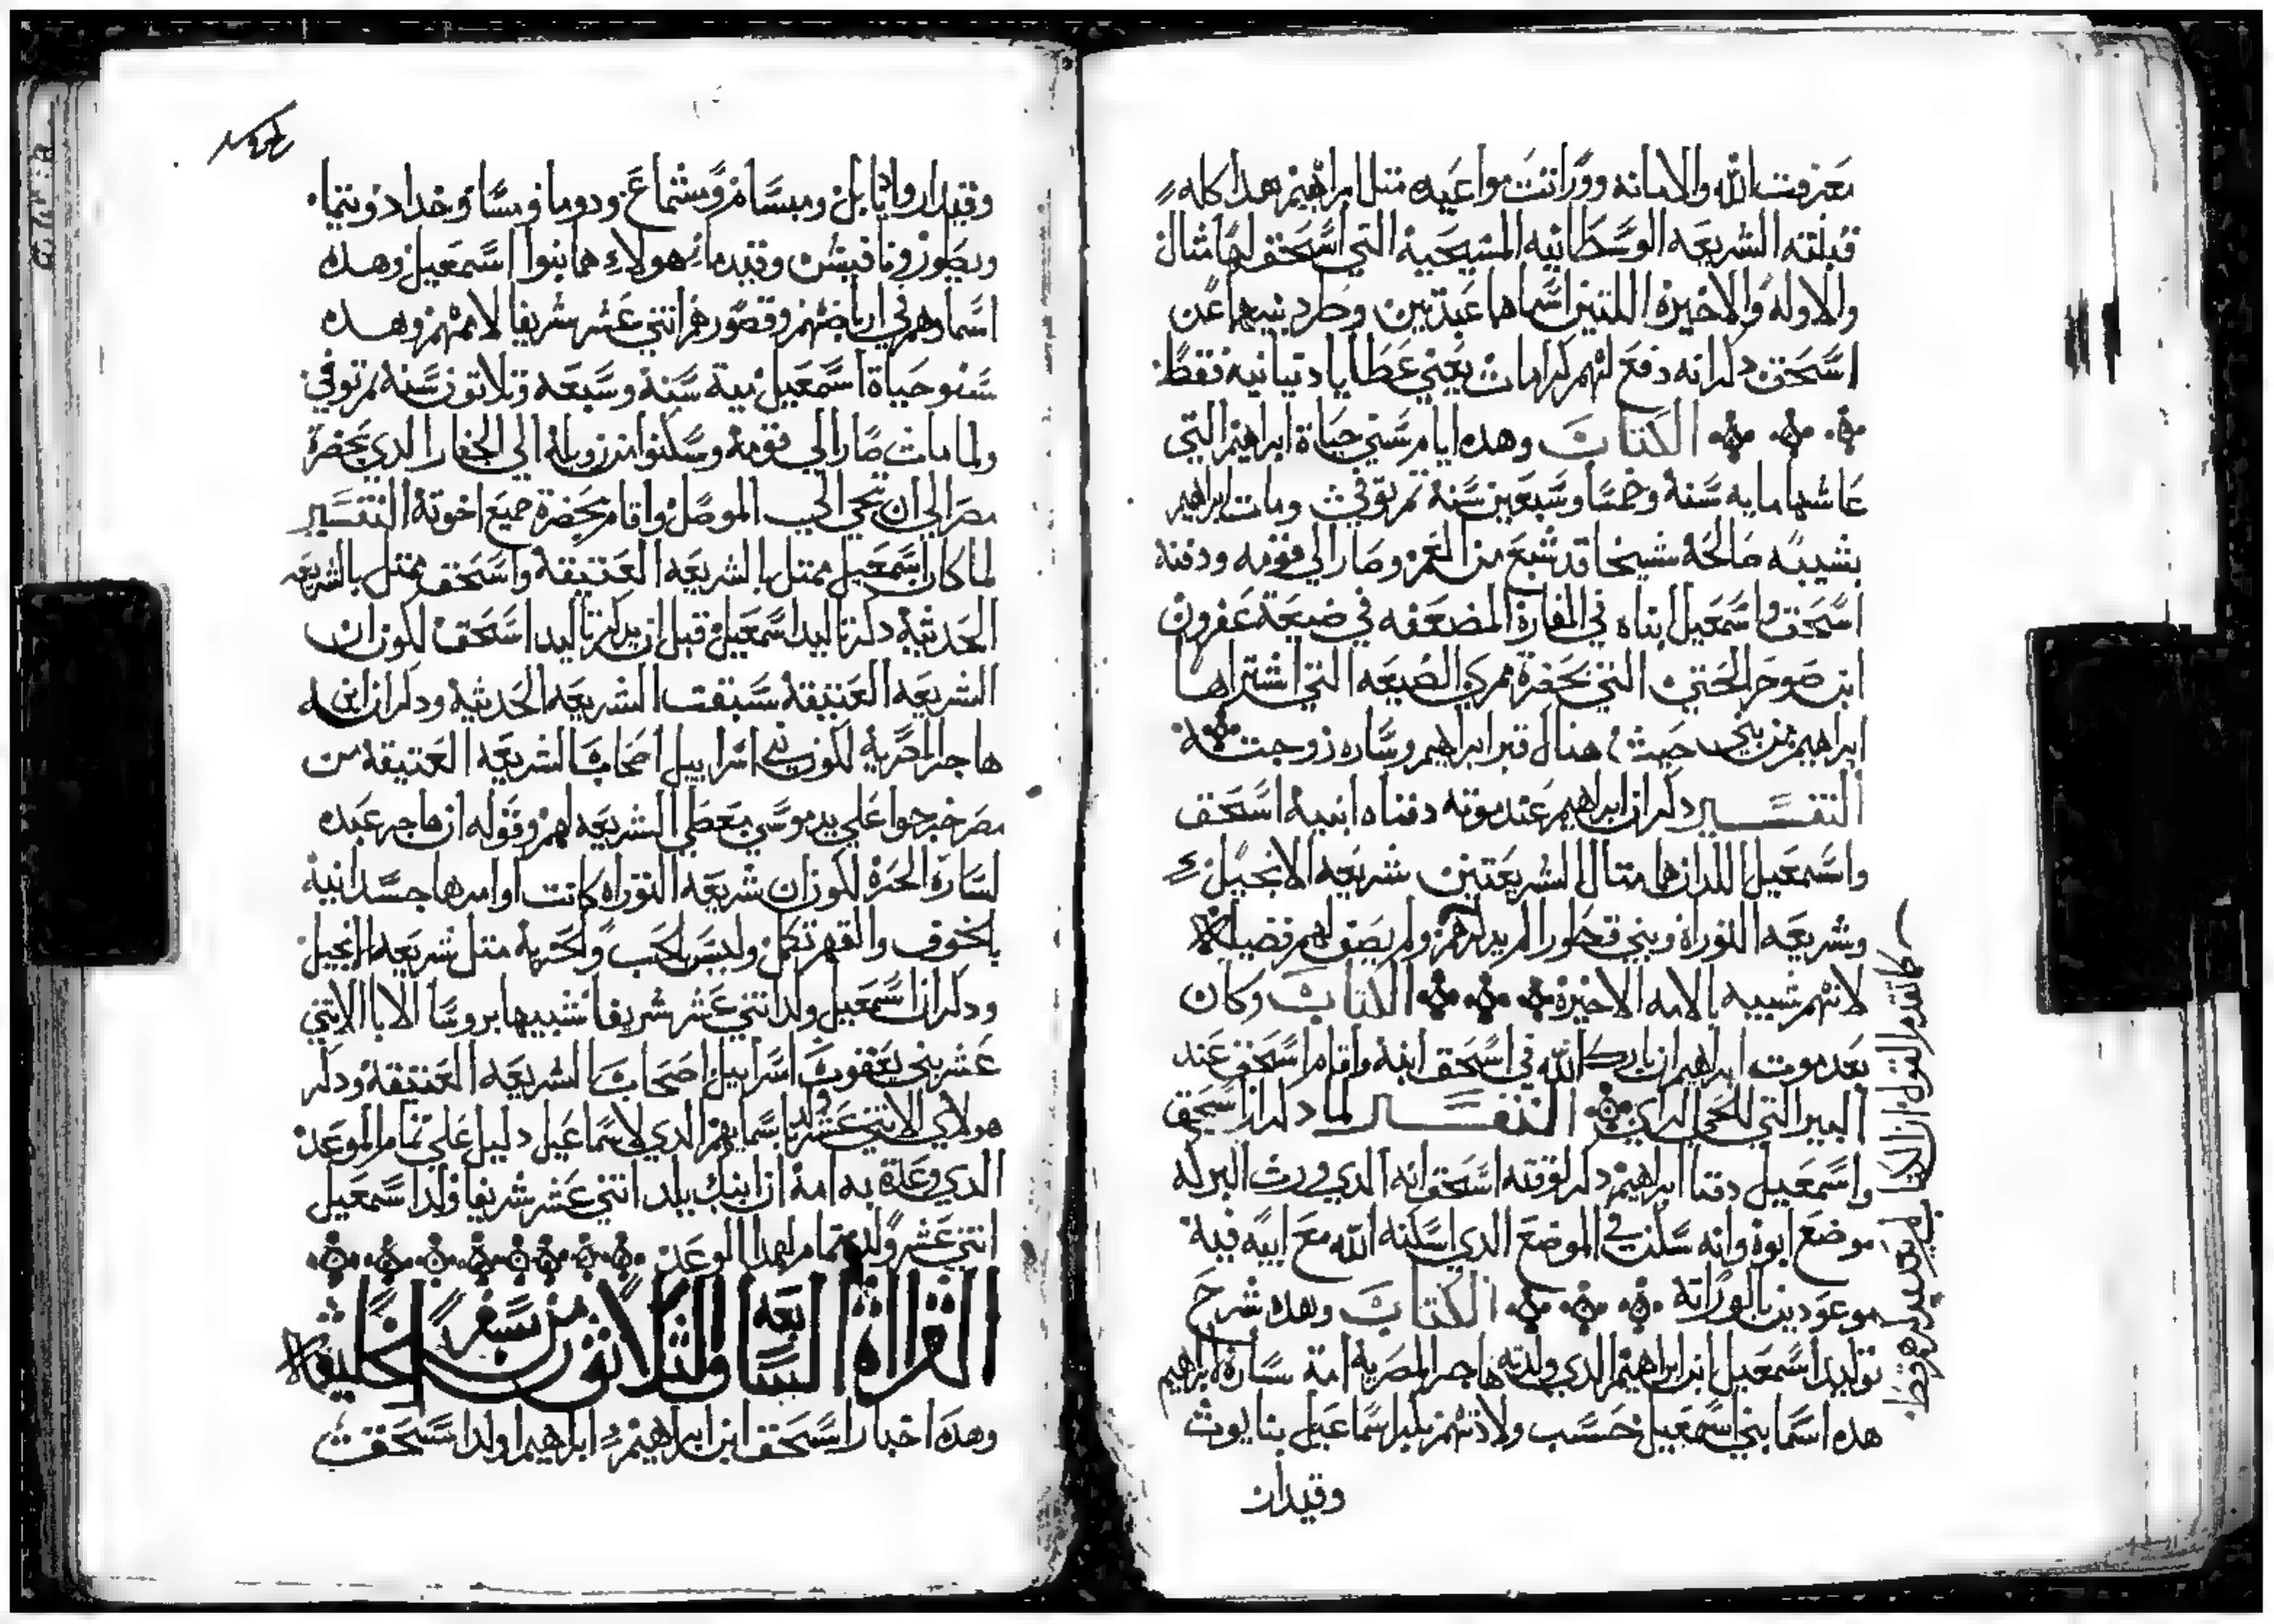 معرفت الله والامانه ووراثت مواعيده متل ابراهيم هدا كله
قبلته الشريعه الوسطانيه المسيحيه التي اسحق لها مثال
والاوله والاخيره اللتين اسماهما عبدتين وطرد بنيهما عن
اسحق دكر انه دفع لهم كرامات يعني عطايا دنيانيه فقط
الكتاب وهده ايام سني حياة ابراهيم التي
عاشها مايه سنة وخمسا وسبعين سنة تم توفي ومات ابراهيم
بشيبه صالحة شيخا قد شبع من العمر وصار الي قومه ودفنه
اسحق واسمعيل ابناه في المغارة المضعفه في ضيعة عفرون
ابن صوحر الحتي التي بحضرة ممري الضيعه التي اشتراها
ابراهيم من بني حيث هناك قبر ابراهيم وساره زوجته
التفسير دكر ان ابراهيم عند موته دفناه ابنيه اسحق
واسمعيل اللدان هما متال الشريعتين شريعه الانجيل
وشريعه التوراه وبني قطورا لم يدكرهم ولم يصف لهم فضيله
لانهم شبيه بالامه الاخيره الكتاب وكان
بعد موت ابراهيم ان بارك الله في اسحق ابنه واقام اسحق عند
البير التي للحي الراي التفسير لما دكر ان اسحق
واسمعيل دفنا ابراهيم دكر لوقته اسحق انه الدي ورث البركه
موضع ابوه وانه سكن في الموضع الدي اسكنه الله مع ابيه فيه
موعودين بالوراثة الكتاب وهده شرح
توليد اسمعيل ابن ابراهيم الدي ولدته هاجر المصريه امة سارة لابراهيم
هده اسما بني اسمعيل حسب ولادتهم بكر اسماعيل بنايوث
وقيدار
كما تقدم القول ان الكتاب لم يعد يدكرهم فقط
وقيدار وادبابل ومبسام ومشماع ودوما ومسا وحداد وتيما
ويطور ونافيش وقيدما هولاء هم بنوا اسمعيل وهده
اسماوهم في ارباضهم وقصورهم اتني عشر شريفا لاممهم وهده
سنو حياة اسمعيل مية سنة وسبعه وتلاتون سنة تم توفي
ولما مات صار الي قومة وسكنوا من زويلة الي الجفار الدي بحضرة
مصر الي ان تجي الي الموصل واقام بحضرة جميع اخوتة التفسير
لما كان اسمعيل ممتل بالشريعه العتيقة واسحق ممتل بالشريعه
الحديثة دكر تاليد اسمعيل قبل ان يدكر تاليد اسحق لكون ان
الشريعه العتيقة سبقت الشريعه الحديثة ودكر ان ابن
هاجر المصرية لكون بني اسراييل اصحاب الشريعه العتيقة من
مصر خرجوا علي يد موسي معطي الشريعه لهم وقوله ان هاجر عبده
لسارة الحرة لكون ان شريعة التوراه كانت اوامرها جسدانية
بالخوف والقهر تكمل وليس بالحب والحرية متل شريعه الانجيل
ودكر ان اسمعيل ولد اتني عشر شريفا شبيها بروسا الابا الاتني
عشر بني يعقوب اسراييل اصحاب الشريعه العتيقة ودكر
هولاي الاتني عشر ولد باسمايهم الدي لاسماعيل دليل علي تمام الموعد
الدي وعدة به امة ان ابنك يلد اتني عشر شريفا فولد اسمعيل
اتني عشر ولد تمام لهدا الوعد
القراة السابعه والتلاتون من سفر الخليقه
وهده اخبار اسحق ابن ابراهيم ابراهيم اولد اسحق